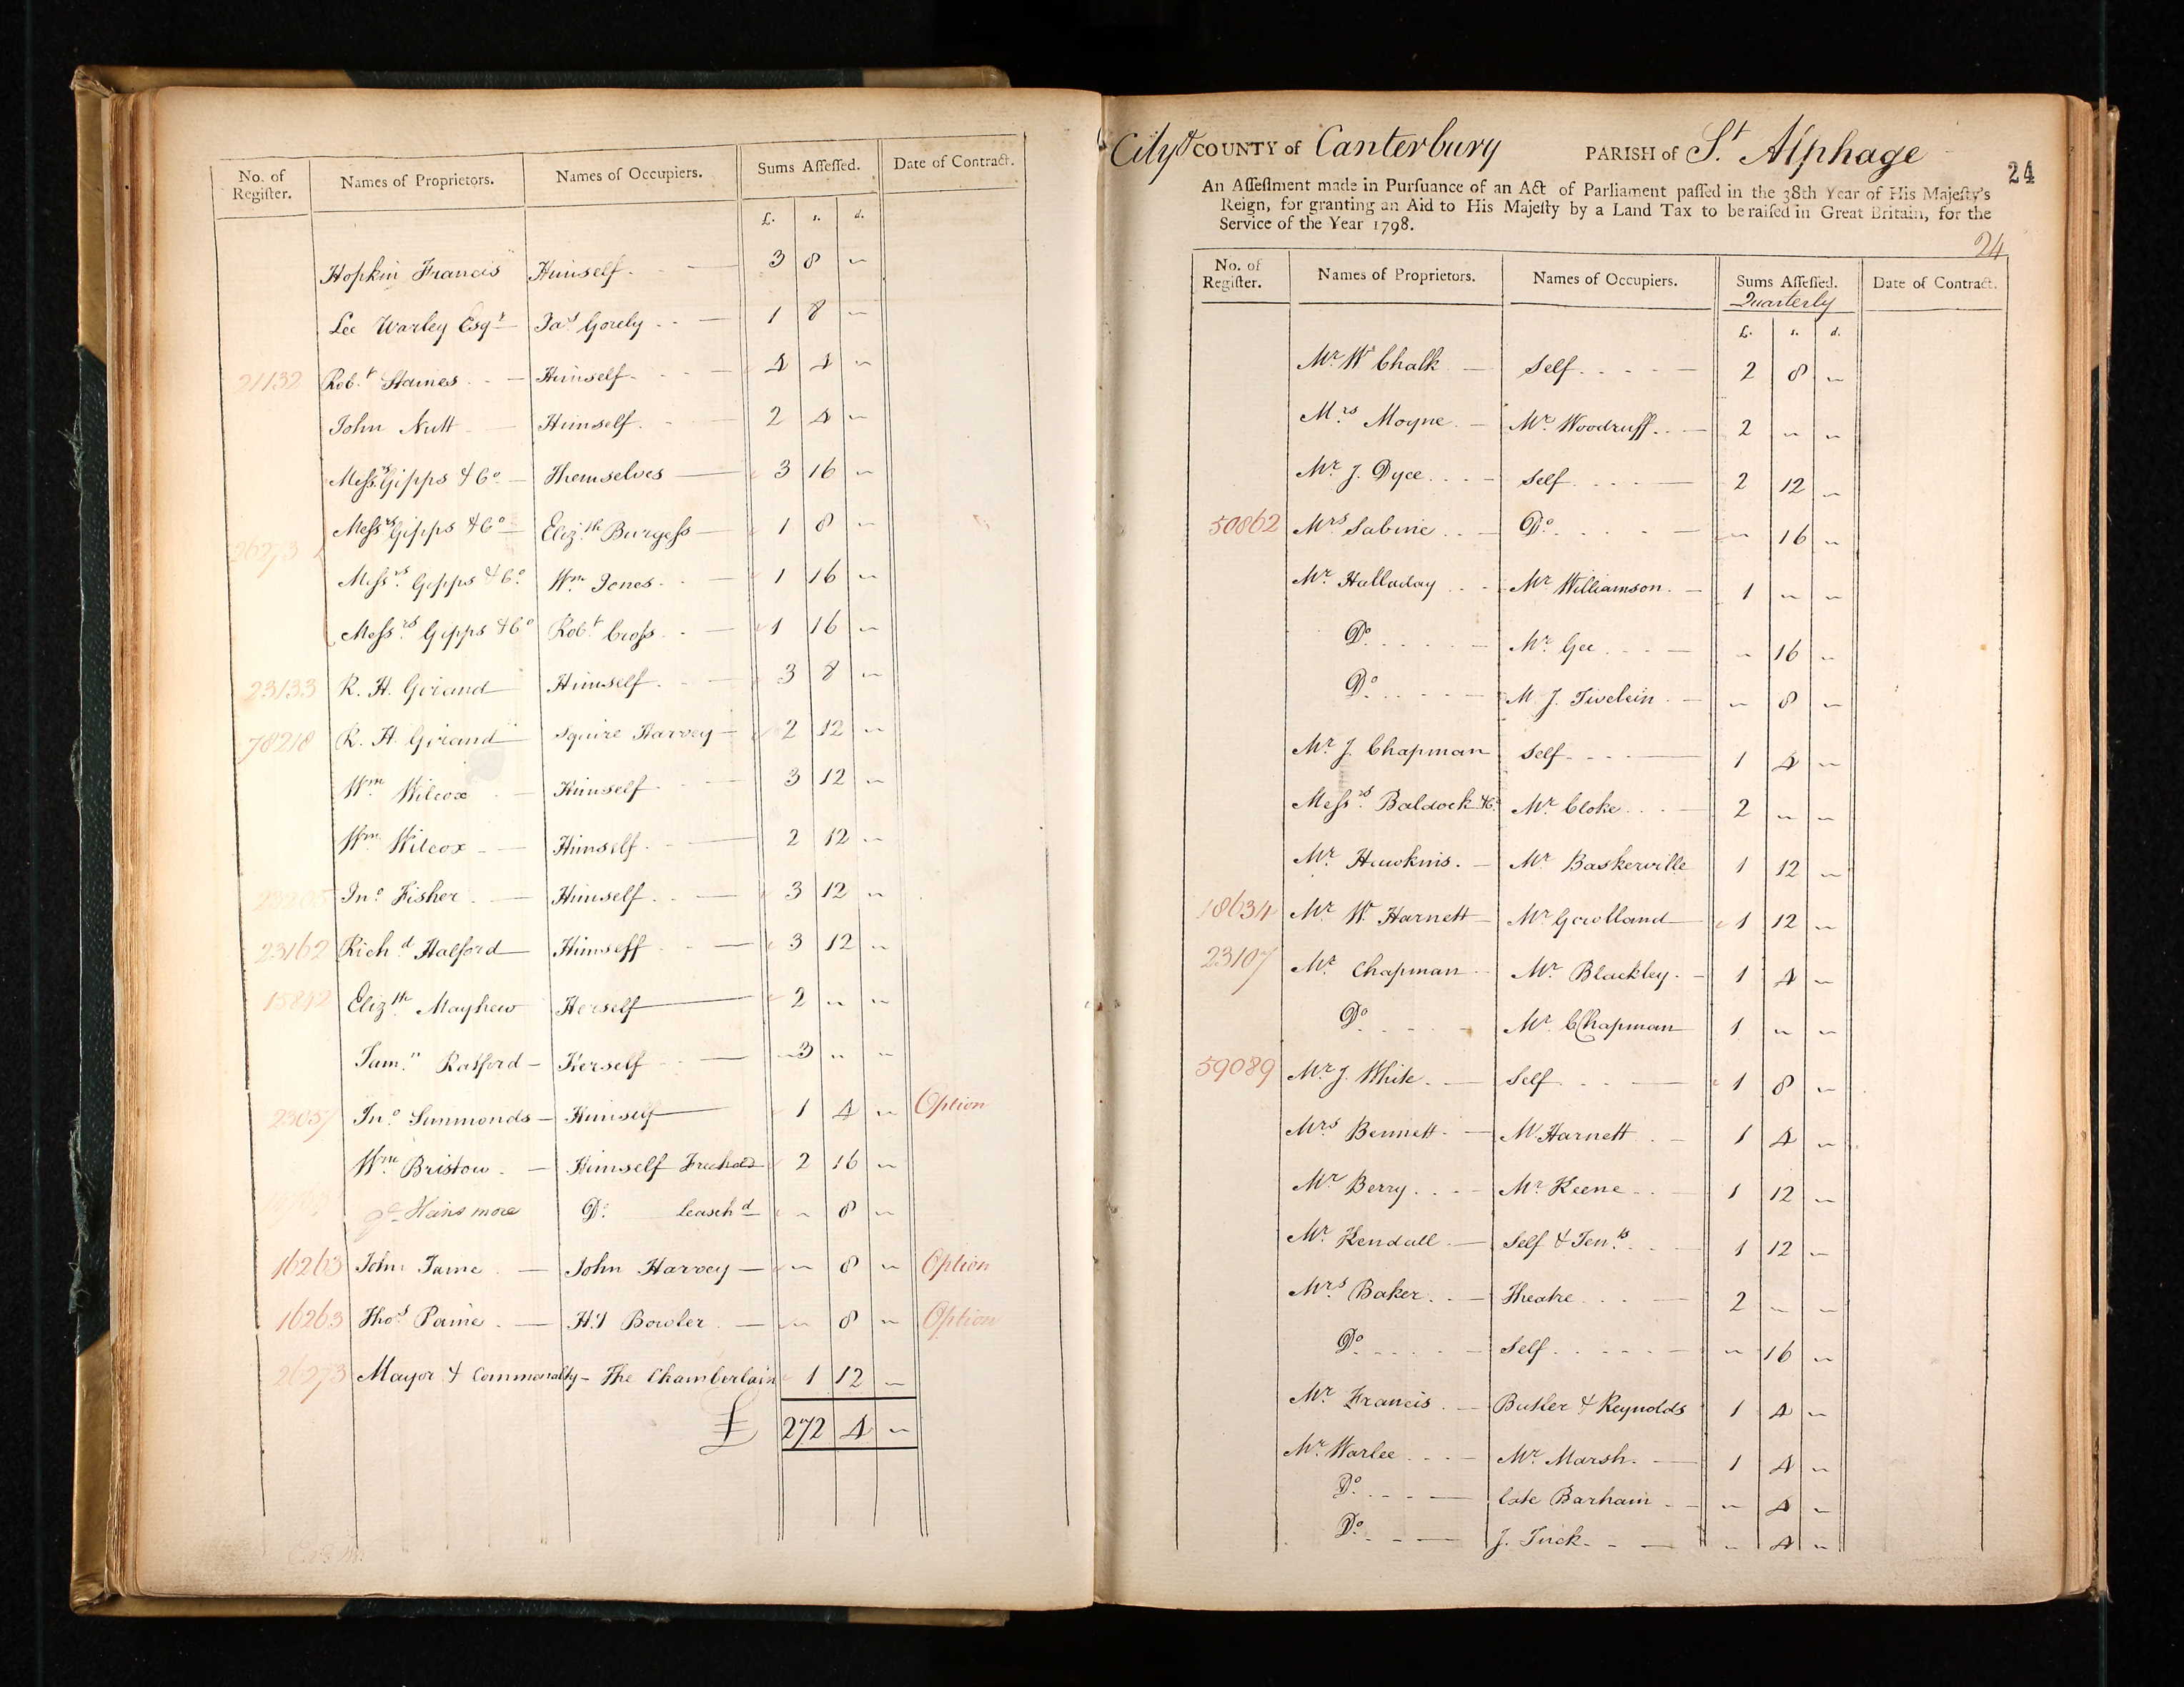 No. of Register. Names of Proprietors. Names of Occupiers. Sums Assessed. Date of Contract.
£. s. d.
Hopkin Francis Himself 3 8 "
Lee Warley Esqr Jas Gorely 1 8 "
21132 Robt Staines Himself 4 4 "
John Nutt Himself 2 4 "
Messrs Gipps & Co Themselves 3 16 "
Messrs Gipps & Co Elizth Burgess 1 8 "
26273
Messrs Gipps & Co Wm Jones 1 16 "
Messrs Gipps & Co Robt Cross 1 16 "
23133 R. H. Goriand Himself 3 8 "
78218 R. H. Goriand Squire Harvey 2 12 "
Wm Wilcox Himself 3 12 "
Wm Wilcox Himself 2 12 "
Jno Fisher Himself 3 12 "
23162 Richd Halford Himself 3 12 "
15842 Elizth Mayhew Herself 2 " "
Ratford Herself 3 " "
23057 Jno Simmonds Himself 1 4 " Option
Wm Bristow Himself Freehold 2 16 "
Do Leasehd " 8 "
16263 John Harvey " 8 " Option
16263 Thos Paine Bowler " 8 " Option
26273 Mayor & Commonalty The Chamberlain 1 12 "
£ 272 4 "
City & COUNTY of Canterbury PARISH of St Alphage
24
An Assessment made in Pursuance of an Act of Parliament passed in the 38th Year of His Majesty's
Reign, for granting an Aid to His Majesty by a Land Tax to be raised in Great Britain, for the
Service of the Year 1798.
24
No. of Register. Names of Proprietors. Names of Occupiers. Sums Assessed. Date of Contract.
Quarterly
£. s. d.
Mr Wm Chalk Self 2 8 "
Mrs Moyne Mr Woodruff 2 " "
Mr J. Dyce Self 2 12 "
50862 Mrs Sabine Do " 16 "
Mr Halladay Mr Williamson 1 " "
Do Mr Gee " 16 "
Do M J. Tivelein " 8 "
Mr J. Chapman Self 1 4 "
Messrs Baldock & Co Mr Cloke 2 " "
Mr Hawkins Mr Baskerville 1 12 "
18634 Mr W Harnett Mr Gowlland 1 12 "
23107 Mr Chapman Mr Blackley 1 4 "
Do Mr Chapman 1 " "
59089 Mr J. White Self 1 8 "
Mrs Bennett Mr Harnett 1 4 "
Mr Berry Mr Keene 1 12 "
Mr Kendall Self & Tents 1 12 "
Mrs Baker Theatre 2 " "
Do Self " 16 "
Mr Francis Butler & Reynolds 1 4 "
Mr Warlee Mr Marsh 1 4 "
Do late Barham " 4 "
Do J. Tuck " 4 "